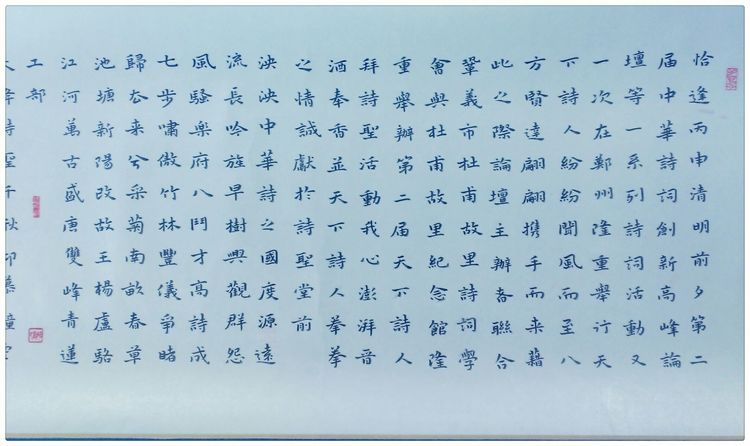 恰逢丙申清明前夕第二
届中華詩詞創新高峰論
壇等一系列詩詞活動又
一次在鄭州隆重舉行天
下詩人紛紛聞風而至八
方賢達翩翩携手而来藉
此之際論壇主辦者聯合
鞏義市杜甫故里詩詞學
會與杜甫故里紀念館隆
重舉辦第二届天下詩人
拜詩聖活動我心澎湃音
酒奉香並天下詩人拳拳
之情誠獻於詩聖堂前
泱泱中華詩之國度源遠
流長吟旌早樹興觀群怨
風騷樂府八鬥才高詩成
七步嘯傲竹林豐儀爭睹
歸去来兮采菊南畝春草
池塘新陽改故王楊盧駱
江河萬古盛唐雙峰青蓮
工部
聖千秋